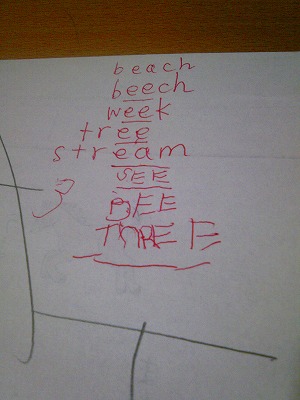 beach
beech
week
tree
stream
SEE
3
BEE
THREE